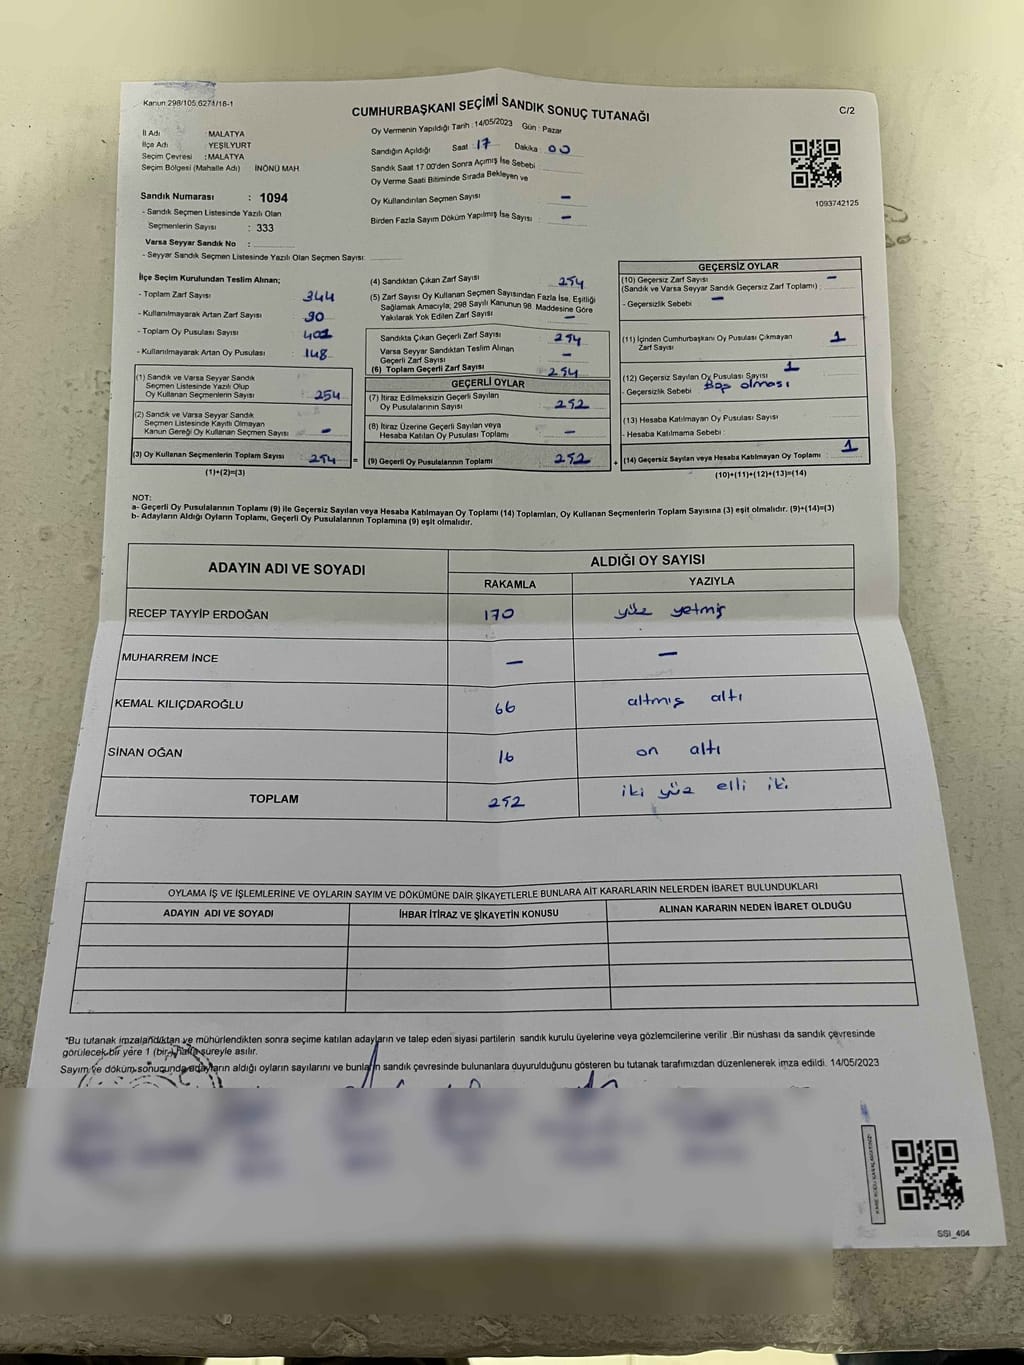 Kanun 298/105,6271/18-1
CUMHURBAŞKANI SEÇİMİ SANDIK SONUÇ TUTANAĞI
C/2
İl Adı : MALATYA
İlçe Adı : YEŞİLYURT
Seçim Çevresi : MALATYA
Seçim Bölgesi (Mahalle Adı) İNÖNÜ MAH.
Sandık Numarası : 1094
- Sandık Seçmen Listesinde Yazılı Olan
Seçmenlerin Sayısı : 333
Varsa Seyyar Sandık No :
- Seyyar Sandık Seçmen Listesinde Yazılı Olan Seçmen Sayısı:
Oy Vermenin Yapıldığı Tarih : 14/05/2023 Gün : Pazar
Sandığın Açıldığı Saat : 17 Dakika : 00
Sandık Saat 17:00'den Sonra Açımış İse Sebebi
Oy Verme Saati Bitiminde Sırada Bekleyen ve
Oy Kullandırılan Seçmen Sayısı –
Birden Fazla Sayım Döküm Yapılmış İse Sayısı : –
1093742125
İlçe Seçim Kurulundan Teslim Alınan;
- Toplam Zarf Sayısı 344
- Kullanılmayarak Artan Zarf Sayısı : 90
- Toplam Oy Pusulası Sayısı :
- Kullanılmayarak Artan Oy Pusulası : 148
(1) Sandık ve Varsa Seyyar Sandık
Seçmen Listesinde Yazılı Olup
Oy Kullanan Seçmenlerin Sayısı : 254
(2) Sandık ve Varsa Seyyar Sandık
Seçmen Listesinde Kayıtlı Olmayan
Kanun Gereği Oy Kullanan Seçmen Sayısı : –
(3) Oy Kullanan Seçmenlerin Toplam Sayısı : 254 =
(1)+(2)=(3)
(4) Sandıktan Çıkan Zarf Sayısı 254
(5) Zarf Sayısı Oy Kullanan Seçmen Sayısından Fazla İse, Eşitliği
Sağlamak Amacıyla; 298 Sayılı Kanunun 98. Maddesine Göre
Yakılarak Yok Edilen Zarf Sayısı –
Sandıkta Çıkan Geçerli Zarf Sayısı : 254
Varsa Seyyar Sandıktan Teslim Alınan
Geçerli Zarf Sayısı –
(6) Toplam Geçerli Zarf Sayısı 254
GEÇERLİ OYLAR
(7) İtiraz Edilmeksizin Geçerli Sayılan
Oy Pusulalarının Sayısı : 252
(8) İtiraz Üzerine Geçerli Sayılan veya
Hesaba Katılan Oy Pusulası Toplamı : –
(9) Geçerli Oy Pusulalarının Toplamı : 252 +
GEÇERSİZ OYLAR
(10) Geçersiz Zarf Sayısı –
(Sandık ve Varsa Seyyar Sandık Geçersiz Zarf Toplamı) :
- Geçersizlik Sebebi : –
(11) İçinden Cumhurbaşkanı Oy Pusulası Çıkmayan
Zarf Sayısı 1
(12) Geçersiz Sayılan Oy Pusulası Sayısı 1
- Geçersizlik Sebebi : Boş olması
(13) Hesaba Katılmayan Oy Pusulası Sayısı
- Hesaba Katılmama Sebebi :
(14) Geçersiz Sayılan veya Hesaba Katılmayan Oy Toplamı : 1
(10)+(11)+(12)+(13)=(14)
NOT:
a- Geçerli Oy Pusulalarının Toplamı (9) ile Geçersiz Sayılan veya Hesaba Katılmayan Oy Toplamı (14) Toplamları, Oy Kullanan Seçmenlerin Toplam Sayısına (3) eşit olmalıdır. (9)+(14)=(3)
b- Adayların Aldığı Oyların Toplamı, Geçerli Oy Pusulalarının Toplamına (9) eşit olmalıdır.
ADAYIN ADI VE SOYADI ALDIĞI OY SAYISI
RAKAMLA YAZIYLA
RECEP TAYYİP ERDOĞAN 170 yüz yetmiş
MUHARREM İNCE – –
KEMAL KILIÇDAROĞLU 66 altmış altı
SİNAN OĞAN 16 on altı
TOPLAM 252 iki yüz elli iki
OYLAMA İŞ VE İŞLEMLERİNE VE OYLARIN SAYIM VE DÖKÜMÜNE DAİR ŞİKAYETLERLE BUNLARA AİT KARARLARIN NELERDEN İBARET BULUNDUKLARI
ADAYIN ADI VE SOYADI İHBAR İTİRAZ VE ŞİKAYETİN KONUSU ALINAN KARARIN NEDEN İBARET OLDUĞU
*Bu tutanak imzalandıktan ve mühürlendikten sonra seçime katılan adayların ve talep eden siyasi partilerin sandık kurulu üyelerine veya gözlemcilerine verilir .Bir nüshası da sandık çevresinde
görülecek bir yere 1 (bir) hafta süreyle asılır.
Sayım ve döküm sonucunda adayların aldığı oyların sayılarını ve bunların sandık çevresinde bulunanlara duyurulduğunu gösteren bu tutanak tarafımızdan düzenlenerek imza edildi. 14/05/2023
SSI_464